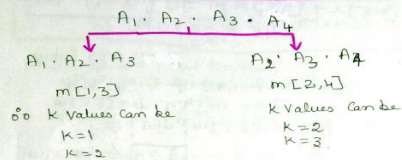 A1 · A2 · A3 · A4
A1 · A2 · A3
m[1,3]
∴ K values can be
K=1
K=2
A2 · A3 · A4
m[2,4]
K values can be
K=2
K=3.